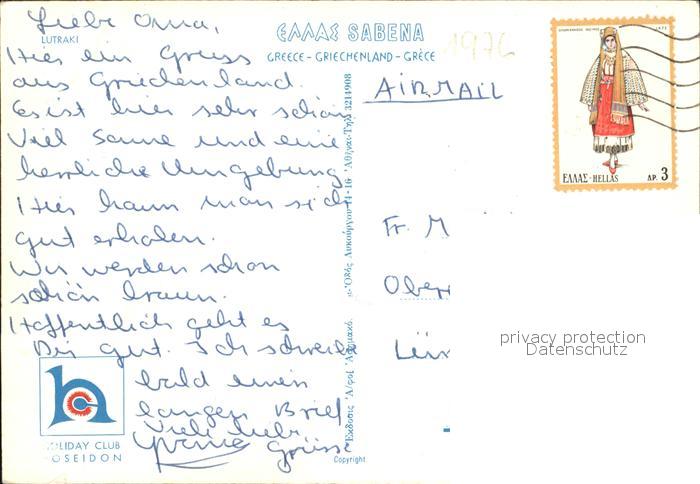 Liebe Oma,
LUTRAKI
Hier ein Gruss
aus Griechenland.
Es ist hier sehr schön
Viel Sonne und eine
herrliche Umgebung
Hier kann man sich
gut erholen.
Wir werden schon
schön braun.
Hoffentlich geht es
Dir gut. Ich schreibe
bald einen
langen Brief
Viele liebe
Grüsse
HOLIDAY CLUB
POSEIDON
ΕΛΛΑΣ SABENA
GREECE - GRIECHENLAND - GRÈCE
1976
AIRMAIL
Έκδοσις
Ὁδὸς Λυκούργου 14-16 Ἀθῆναι-Τηλ. 3214908
Copyright
Fr. M
Ober
Lün
privacy protection
Datenschutz
ΕΛΛΑΣ-HELLAS ΔΡ. 3